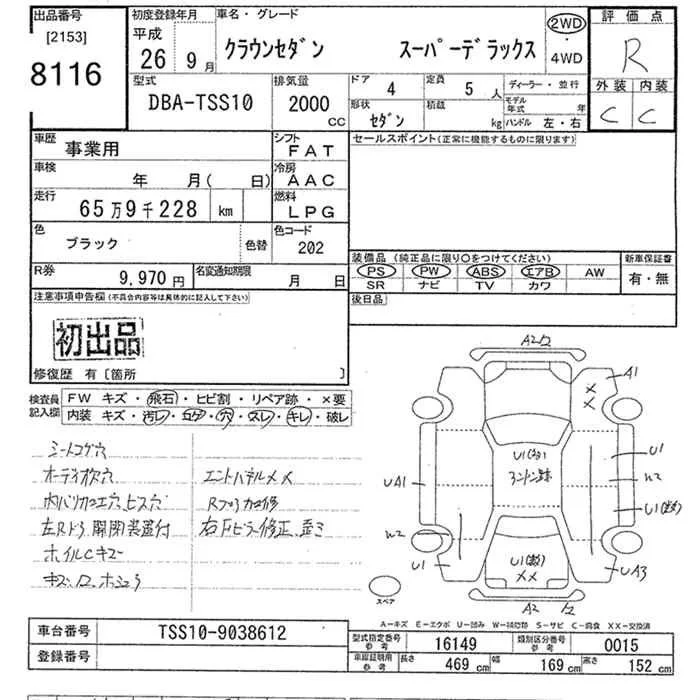 出品番号 初度登録年月 車名・グレード 2WD 評価点
[2153] 平成 ・
8116 26年 9月 クラウンセダン スーパーデラックス 4WD R
型式 排気量 ドア 4 定員 5人 ディーラー・並行 外装 内装
DBA-TSS10 2000 CC 形状 セダン 積載 kg モデル年式 年 ハンドル 左・右 C C
車歴 事業用 シフト FAT セールスポイント(正常に機能するものに限ります)
車検 年 月( 日) 冷房 AAC
走行 65万9千228 km 燃料 LPG
色 ブラック 色替 色コード 202
装備品 (純正品に限り○をつけてください) 新車保証書
R券 9,970円 名変通知期限 月 日 PS PW ABS エアB AW 有・無
SR ナビ TV カワ
注意事項申告欄(不具合内容等は具体的に記入して下さい) 後日品
初出品
修復歴 有〔箇所 〕
検査員 FW キズ・飛石・ヒビ割・リペア跡・×要
記入欄 内装 キズ・汚レ・コゲ・穴・スレ・キレ・破レ
シートコゲ穴
オーディオ欠穴 エンドパネルメメ
左Rドラ開閉装置付
A2 A1
U1
UA1 W2
W2
U1 UA3
XX
A2
スペア
A-キズ E-エクボ U-凹み W-補修跡 S-サビ C-腐食 XX-交換済
車台番号 TSS10-9038612
型式指定番号 参考 16149 類別区分番号 参考 0015
登録番号
車庫証明用 参考 長さ 469cm 幅 169cm 高さ 152cm